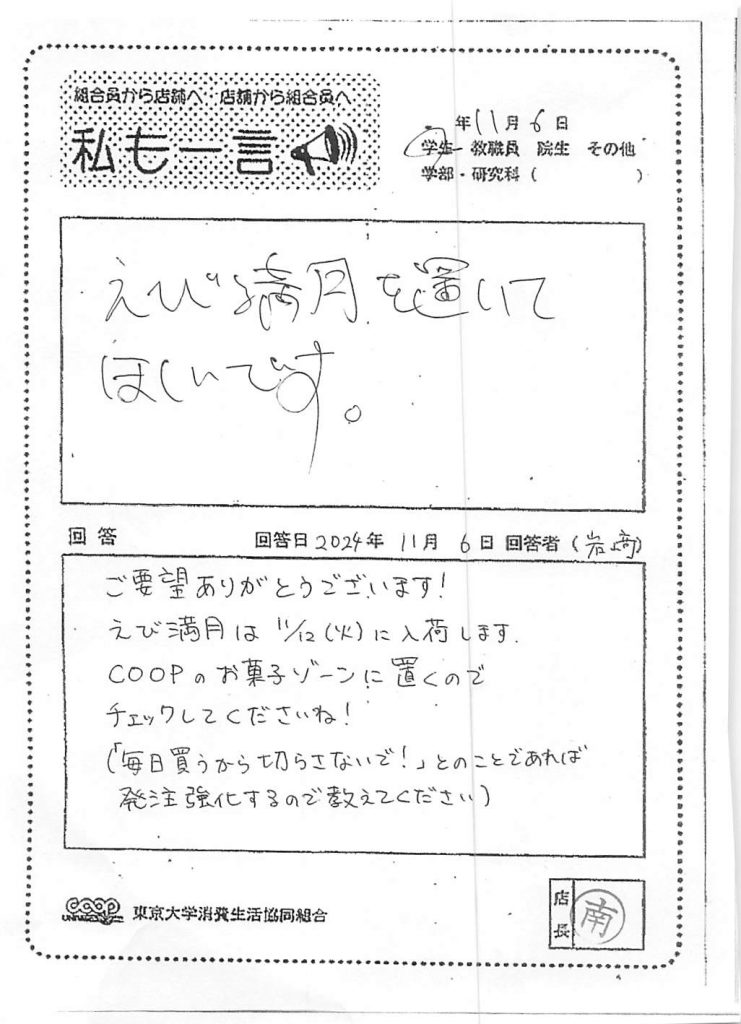 組合員から店舗へ 店舗から組合員へ
私も一言
年11月6日
学生 教職員 院生 その他
学部・研究科( )
えび満月を置いて
ほしいです。
回答 回答日2024年 11月 6日 回答者(岩崎)
ご要望ありがとうございます!
えび満月は 11/12(火)に入荷します.
COOPのお菓子ゾーンに置くので
チェックしてくださいね!
(「毎日買うから切らさないで!」とのことであれば
発注強化するので教えてください)
coop 東京大学消費生活協同組合
店長 南